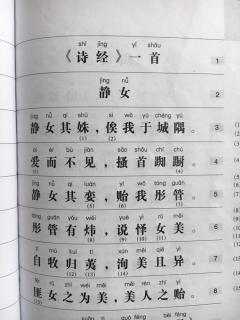 shī jīng yī shǒu
《诗经》一首 1
jìng nǚ
静女 2
jìng nǚ qí shū sì wǒ yú chéng yú
静女其姝，俟我于城隅。 3
ài ér bù jiàn sāo shǒu chí chú
爱而不见，搔首踟蹰 4
jìng nǚ qí luán yí wǒ tóng guǎn
静女其娈，贻我彤管 5
tóng guǎn yǒu wěi yuè yì rǔ měi
彤管有炜，说怿女美 6
zì mù kuì tí xún měi qiě yì
自牧归荑，洵美且异 7
fěi rǔ zhī wéi měi měi rén zhī yí
匪女之为美，美人之贻 8